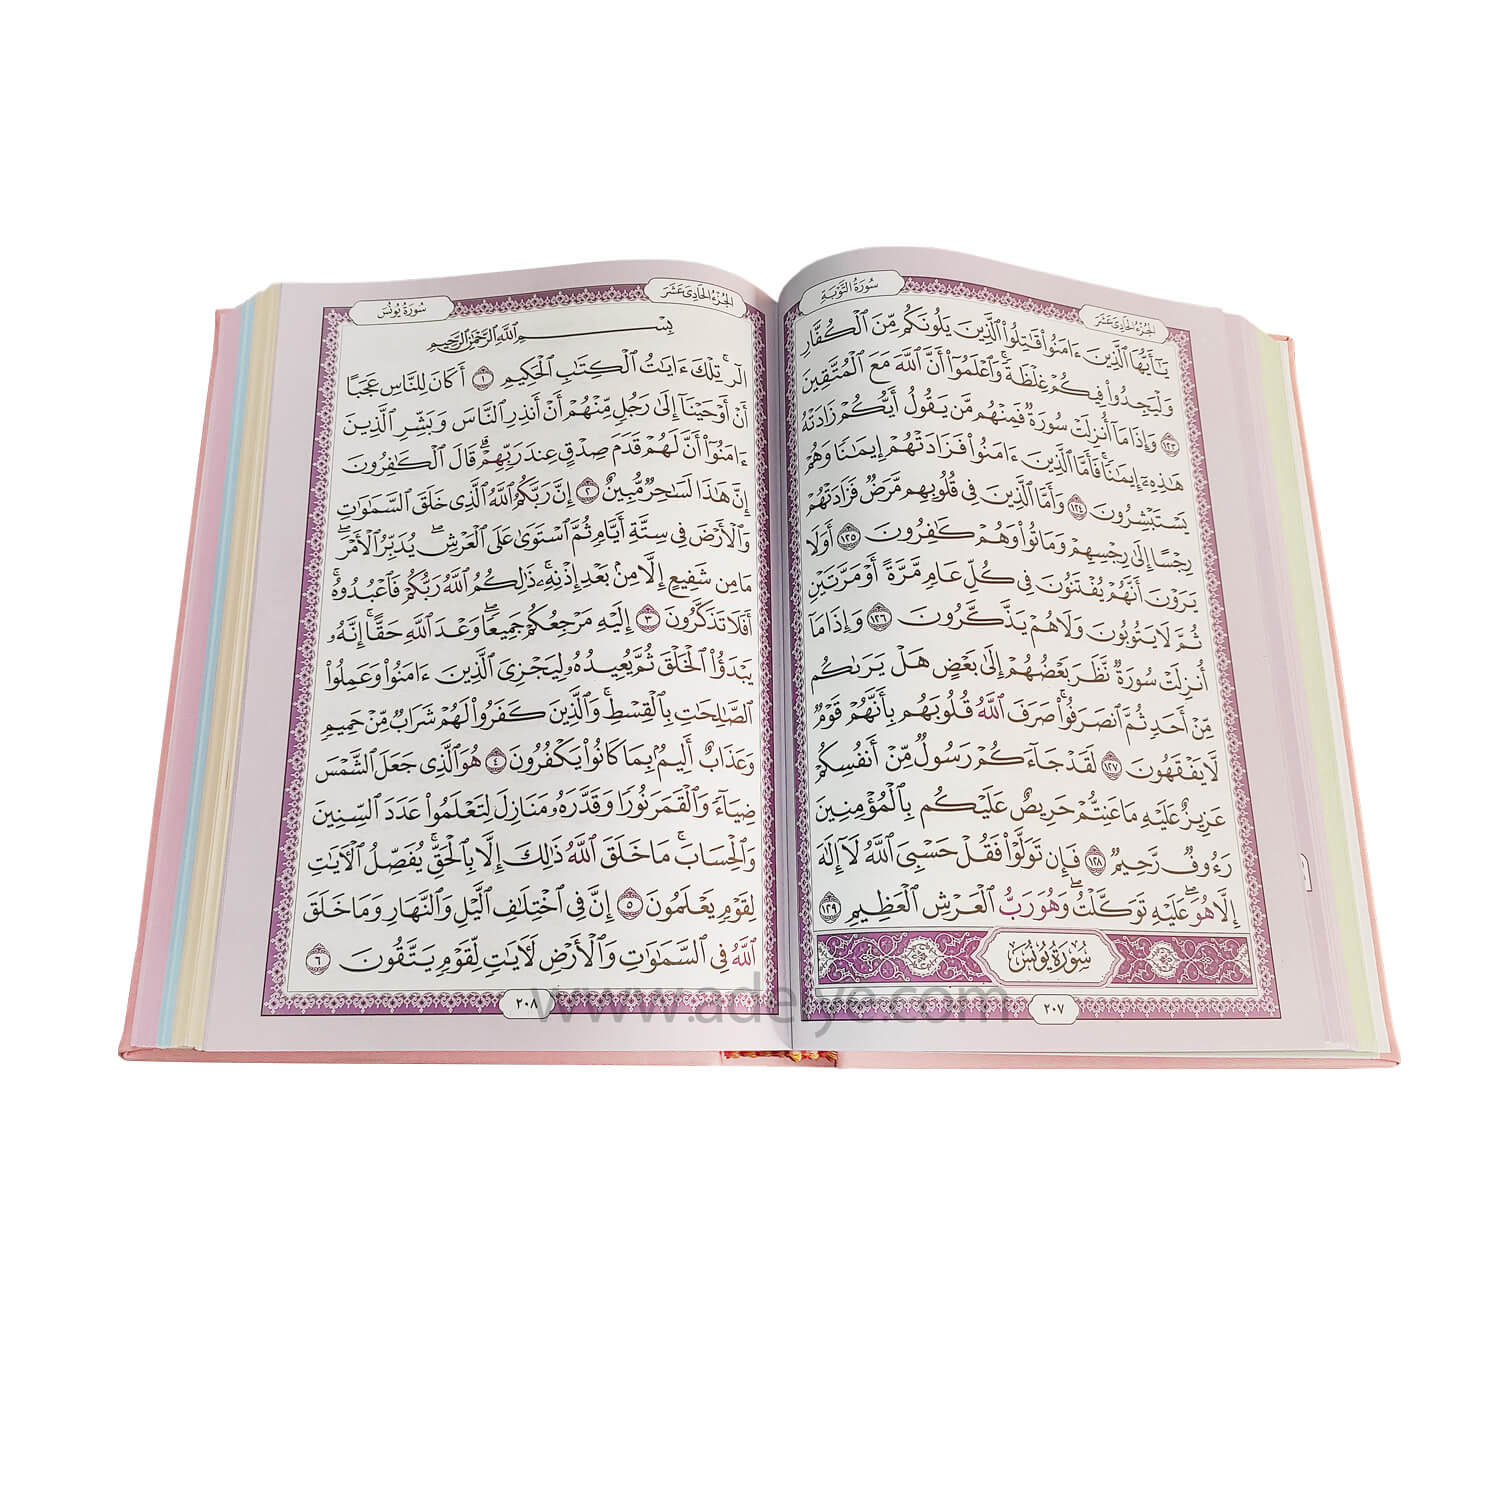 سُورَةُ التَّوْبَةِ
الجُزْءُ الحَادِىَ عَشَرَ
يَٰٓأَيُّهَا ٱلَّذِينَ ءَامَنُوا۟ قَٰتِلُوا۟ ٱلَّذِينَ يَلُونَكُم مِّنَ ٱلْكُفَّارِ
وَلْيَجِدُوا۟ فِيكُمْ غِلْظَةً ۚ وَٱعْلَمُوٓا۟ أَنَّ ٱللَّهَ مَعَ ٱلْمُتَّقِينَ
١٢٣ وَإِذَا مَآ أُنزِلَتْ سُورَةٌ فَمِنْهُم مَّن يَقُولُ أَيُّكُمْ زَادَتْهُ
هَٰذِهِۦٓ إِيمَٰنًا ۚ فَأَمَّا ٱلَّذِينَ ءَامَنُوا۟ فَزَادَتْهُمْ إِيمَٰنًا وَهُمْ
يَسْتَبْشِرُونَ ١٢٤ وَأَمَّا ٱلَّذِينَ فِى قُلُوبِهِم مَّرَضٌ فَزَادَتْهُمْ
رِجْسًا إِلَىٰ رِجْسِهِمْ وَمَاتُوا۟ وَهُمْ كَٰفِرُونَ ١٢٥ أَوَلَا
يَرَوْنَ أَنَّهُمْ يُفْتَنُونَ فِى كُلِّ عَامٍ مَّرَّةً أَوْ مَرَّتَيْنِ
ثُمَّ لَا يَتُوبُونَ وَلَا هُمْ يَذَّكَّرُونَ ١٢٦ وَإِذَا مَآ
أُنزِلَتْ سُورَةٌ نَّظَرَ بَعْضُهُمْ إِلَىٰ بَعْضٍ هَلْ يَرَىٰكُم
مِّنْ أَحَدٍ ثُمَّ ٱنصَرَفُوا۟ ۚ صَرَفَ ٱللَّهُ قُلُوبَهُم بِأَنَّهُمْ قَوْمٌ
لَّا يَفْقَهُونَ ١٢٧ لَقَدْ جَآءَكُمْ رَسُولٌ مِّنْ أَنفُسِكُمْ
عَزِيزٌ عَلَيْهِ مَا عَنِتُّمْ حَرِيصٌ عَلَيْكُم بِٱلْمُؤْمِنِينَ
رَءُوفٌ رَّحِيمٌ ١٢٨ فَإِن تَوَلَّوْا۟ فَقُلْ حَسْبِىَ ٱللَّهُ لَآ إِلَٰهَ
إِلَّا هُوَ ۖ عَلَيْهِ تَوَكَّلْتُ ۖ وَهُوَ رَبُّ ٱلْعَرْشِ ٱلْعَظِيمِ ١٢٩
سُورَةُ يُونُسَ
٢٠٧
الجُزْءُ الحَادِىَ عَشَرَ
سُورَةُ يُونُسَ
بِسْمِ ٱللَّهِ ٱلرَّحْمَٰنِ ٱلرَّحِيمِ
الٓر ۚ تِلْكَ ءَايَٰتُ ٱلْكِتَٰبِ ٱلْحَكِيمِ ١ أَكَانَ لِلنَّاسِ عَجَبًا
أَنْ أَوْحَيْنَآ إِلَىٰ رَجُلٍ مِّنْهُمْ أَنْ أَنذِرِ ٱلنَّاسَ وَبَشِّرِ ٱلَّذِينَ
ءَامَنُوٓا۟ أَنَّ لَهُمْ قَدَمَ صِدْقٍ عِندَ رَبِّهِمْ ۗ قَالَ ٱلْكَٰفِرُونَ
إِنَّ هَٰذَا لَسَٰحِرٌ مُّبِينٌ ٢ إِنَّ رَبَّكُمُ ٱللَّهُ ٱلَّذِى خَلَقَ ٱلسَّمَٰوَٰتِ
وَٱلْأَرْضَ فِى سِتَّةِ أَيَّامٍ ثُمَّ ٱسْتَوَىٰ عَلَى ٱلْعَرْشِ ۖ يُدَبِّرُ ٱلْأَمْرَ ۖ
مَا مِن شَفِيعٍ إِلَّا مِنۢ بَعْدِ إِذْنِهِۦ ۚ ذَٰلِكُمُ ٱللَّهُ رَبُّكُمْ فَٱعْبُدُوهُ ۚ
أَفَلَا تَذَكَّرُونَ ٣ إِلَيْهِ مَرْجِعُكُمْ جَمِيعًا ۖ وَعْدَ ٱللَّهِ حَقًّا ۚ إِنَّهُۥ
يَبْدَؤُا۟ ٱلْخَلْقَ ثُمَّ يُعِيدُهُۥ لِيَجْزِىَ ٱلَّذِينَ ءَامَنُوا۟ وَعَمِلُوا۟
ٱلصَّٰلِحَٰتِ بِٱلْقِسْطِ ۚ وَٱلَّذِينَ كَفَرُوا۟ لَهُمْ شَرَابٌ مِّنْ حَمِيمٍ
وَعَذَابٌ أَلِيمٌۢ بِمَا كَانُوا۟ يَكْفُرُونَ ٤ هُوَ ٱلَّذِى جَعَلَ ٱلشَّمْسَ
ضِيَآءً وَٱلْقَمَرَ نُورًا وَقَدَّرَهُۥ مَنَازِلَ لِتَعْلَمُوا۟ عَدَدَ ٱلسِّنِينَ
وَٱلْحِسَابَ ۚ مَا خَلَقَ ٱللَّهُ ذَٰلِكَ إِلَّا بِٱلْحَقِّ ۚ يُفَصِّلُ ٱلْءَايَٰتِ
لِقَوْمٍ يَعْلَمُونَ ٥ إِنَّ فِى ٱخْتِلَٰفِ ٱلَّيْلِ وَٱلنَّهَارِ وَمَا خَلَقَ
ٱللَّهُ فِى ٱلسَّمَٰوَٰتِ وَٱلْأَرْضِ لَءَايَٰتٍ لِّقَوْمٍ يَتَّقُونَ ٦
٢٠٨
www.adeiye.com